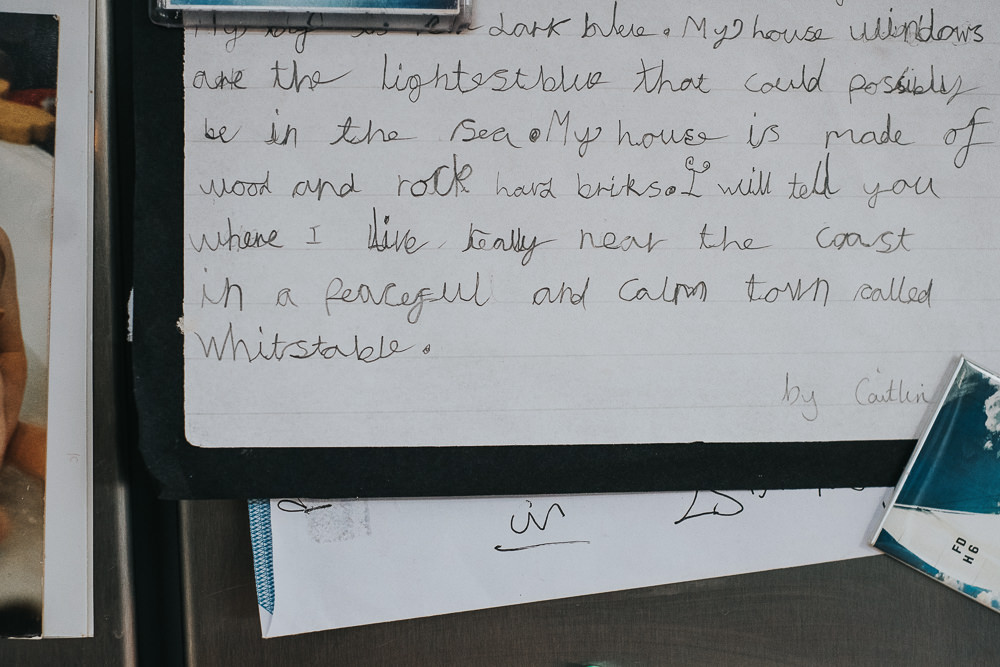 My is dark blue. My house windows
are the lightest blue that could possibly
be in the sea. My house is made of
wood and rock hard briks. I will tell you
where I live really near the coast
in a peaceful and calm town called
Whitstable.
by Caitlin
in
FD
H6